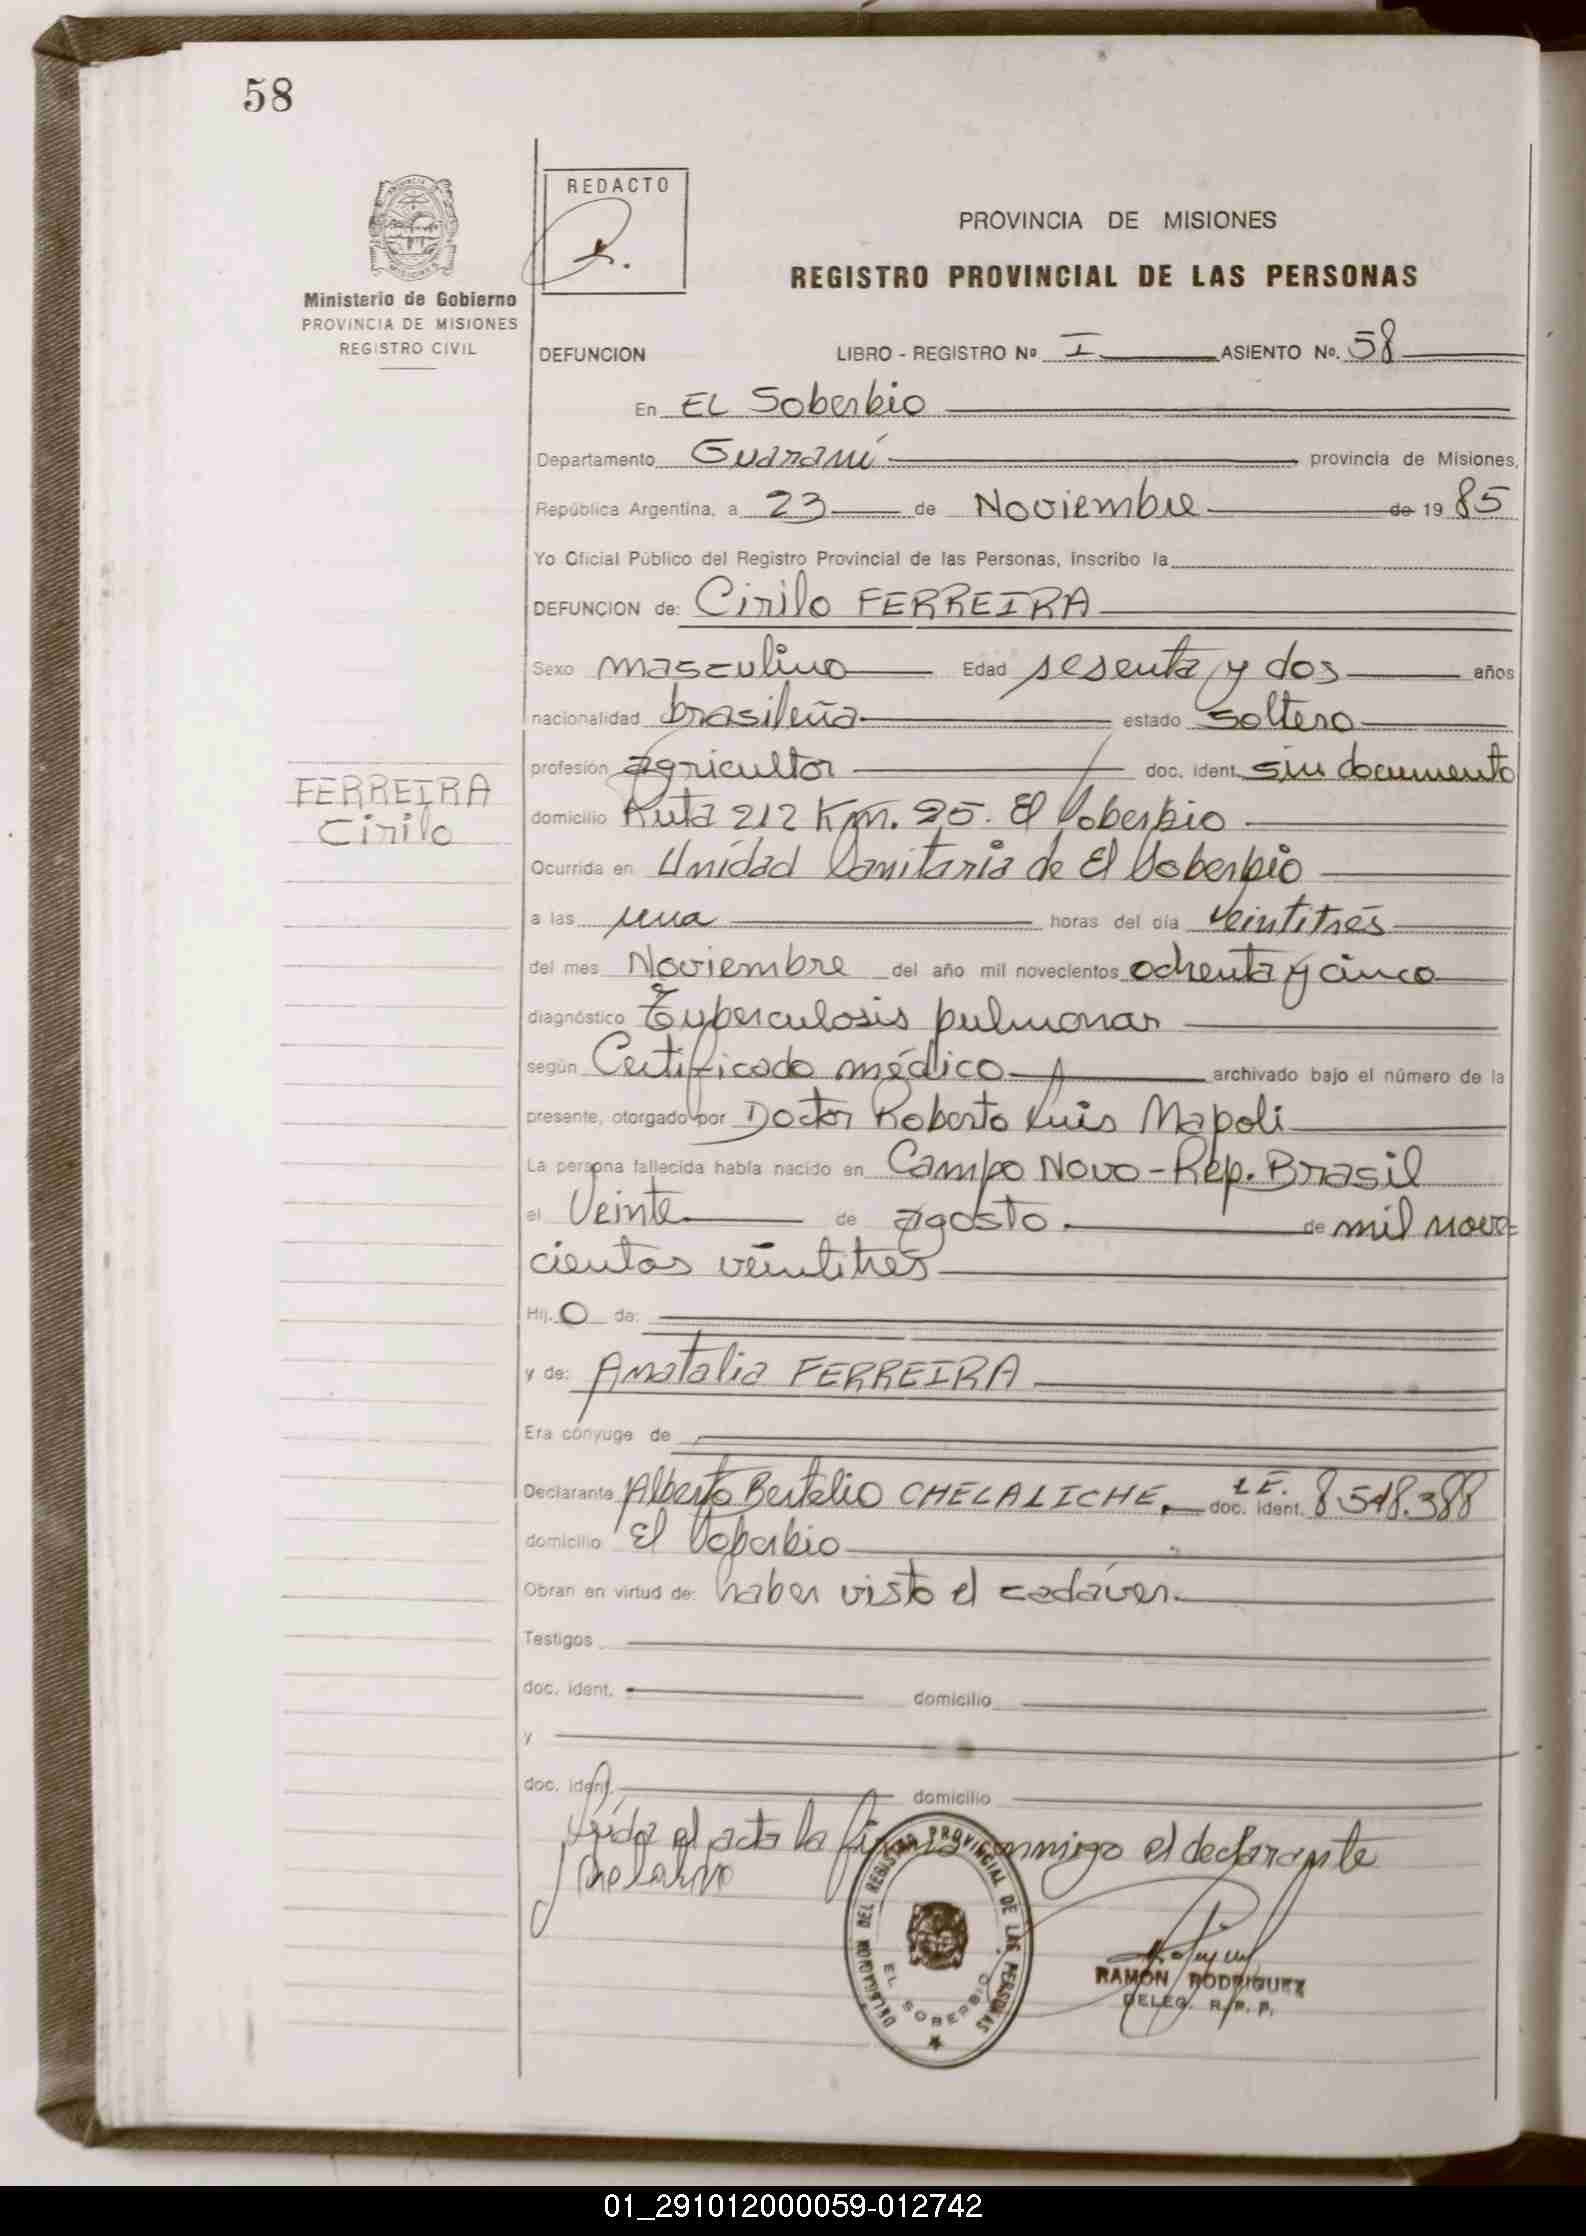 58
REDACTO
PROVINCIA DE MISIONES
REGISTRO PROVINCIAL DE LAS PERSONAS
Ministerio de Gobierno
PROVINCIA DE MISIONES
REGISTRO CIVIL
DEFUNCION LIBRO - REGISTRO Nº I ASIENTO No. 58
En EL Soberbio
Departamento Guaraní provincia de Misiones,
República Argentina, a 23 de Noviembre de 19 85
Yo Oficial Público del Registro Provincial de las Personas, inscribo la
DEFUNCION de: Cirilo FERREIRA
Sexo masculino Edad sesenta y dos años
nacionalidad brasileña estado soltero
profesión agricultor doc. ident. sin documento
FERREIRA
Cirilo
domicilio Ruta 212 Km. 25. El Soberbio
Ocurrida en Unidad Sanitaria de El Soberbio
a las una horas del día veintitrés
del mes Noviembre del año mil novecientos ochenta y cinco
diagnóstico Tuberculosis pulmonar
según Certificado médico archivado bajo el número de la
presente, otorgado por Doctor Roberto Luis Mapoli
La persona fallecida había nacido en Campo Novo - Rep. Brasil
el Veinte de agosto de mil nove=
cientos veintitrés
Hij. O de:
y de: Anatalia FERREIRA
Era cónyuge de
Declarante Alberto Bertelio CHELALICHE, L.E. doc. ident. 8.548.388
domicilio El Soberbio
Obran en virtud de: haber visto el cadáver.
Testigos
doc. ident. domicilio
y
doc. ident. domicilio
Leída el acta la firma conmigo el declarante
DELEGACION DEL REGISTRO PROVINCIAL DE LAS PERSONAS
EL SOBERBIO
RAMON RODRIGUEZ
DELEG. R. P. P.
01_291012000059-012742